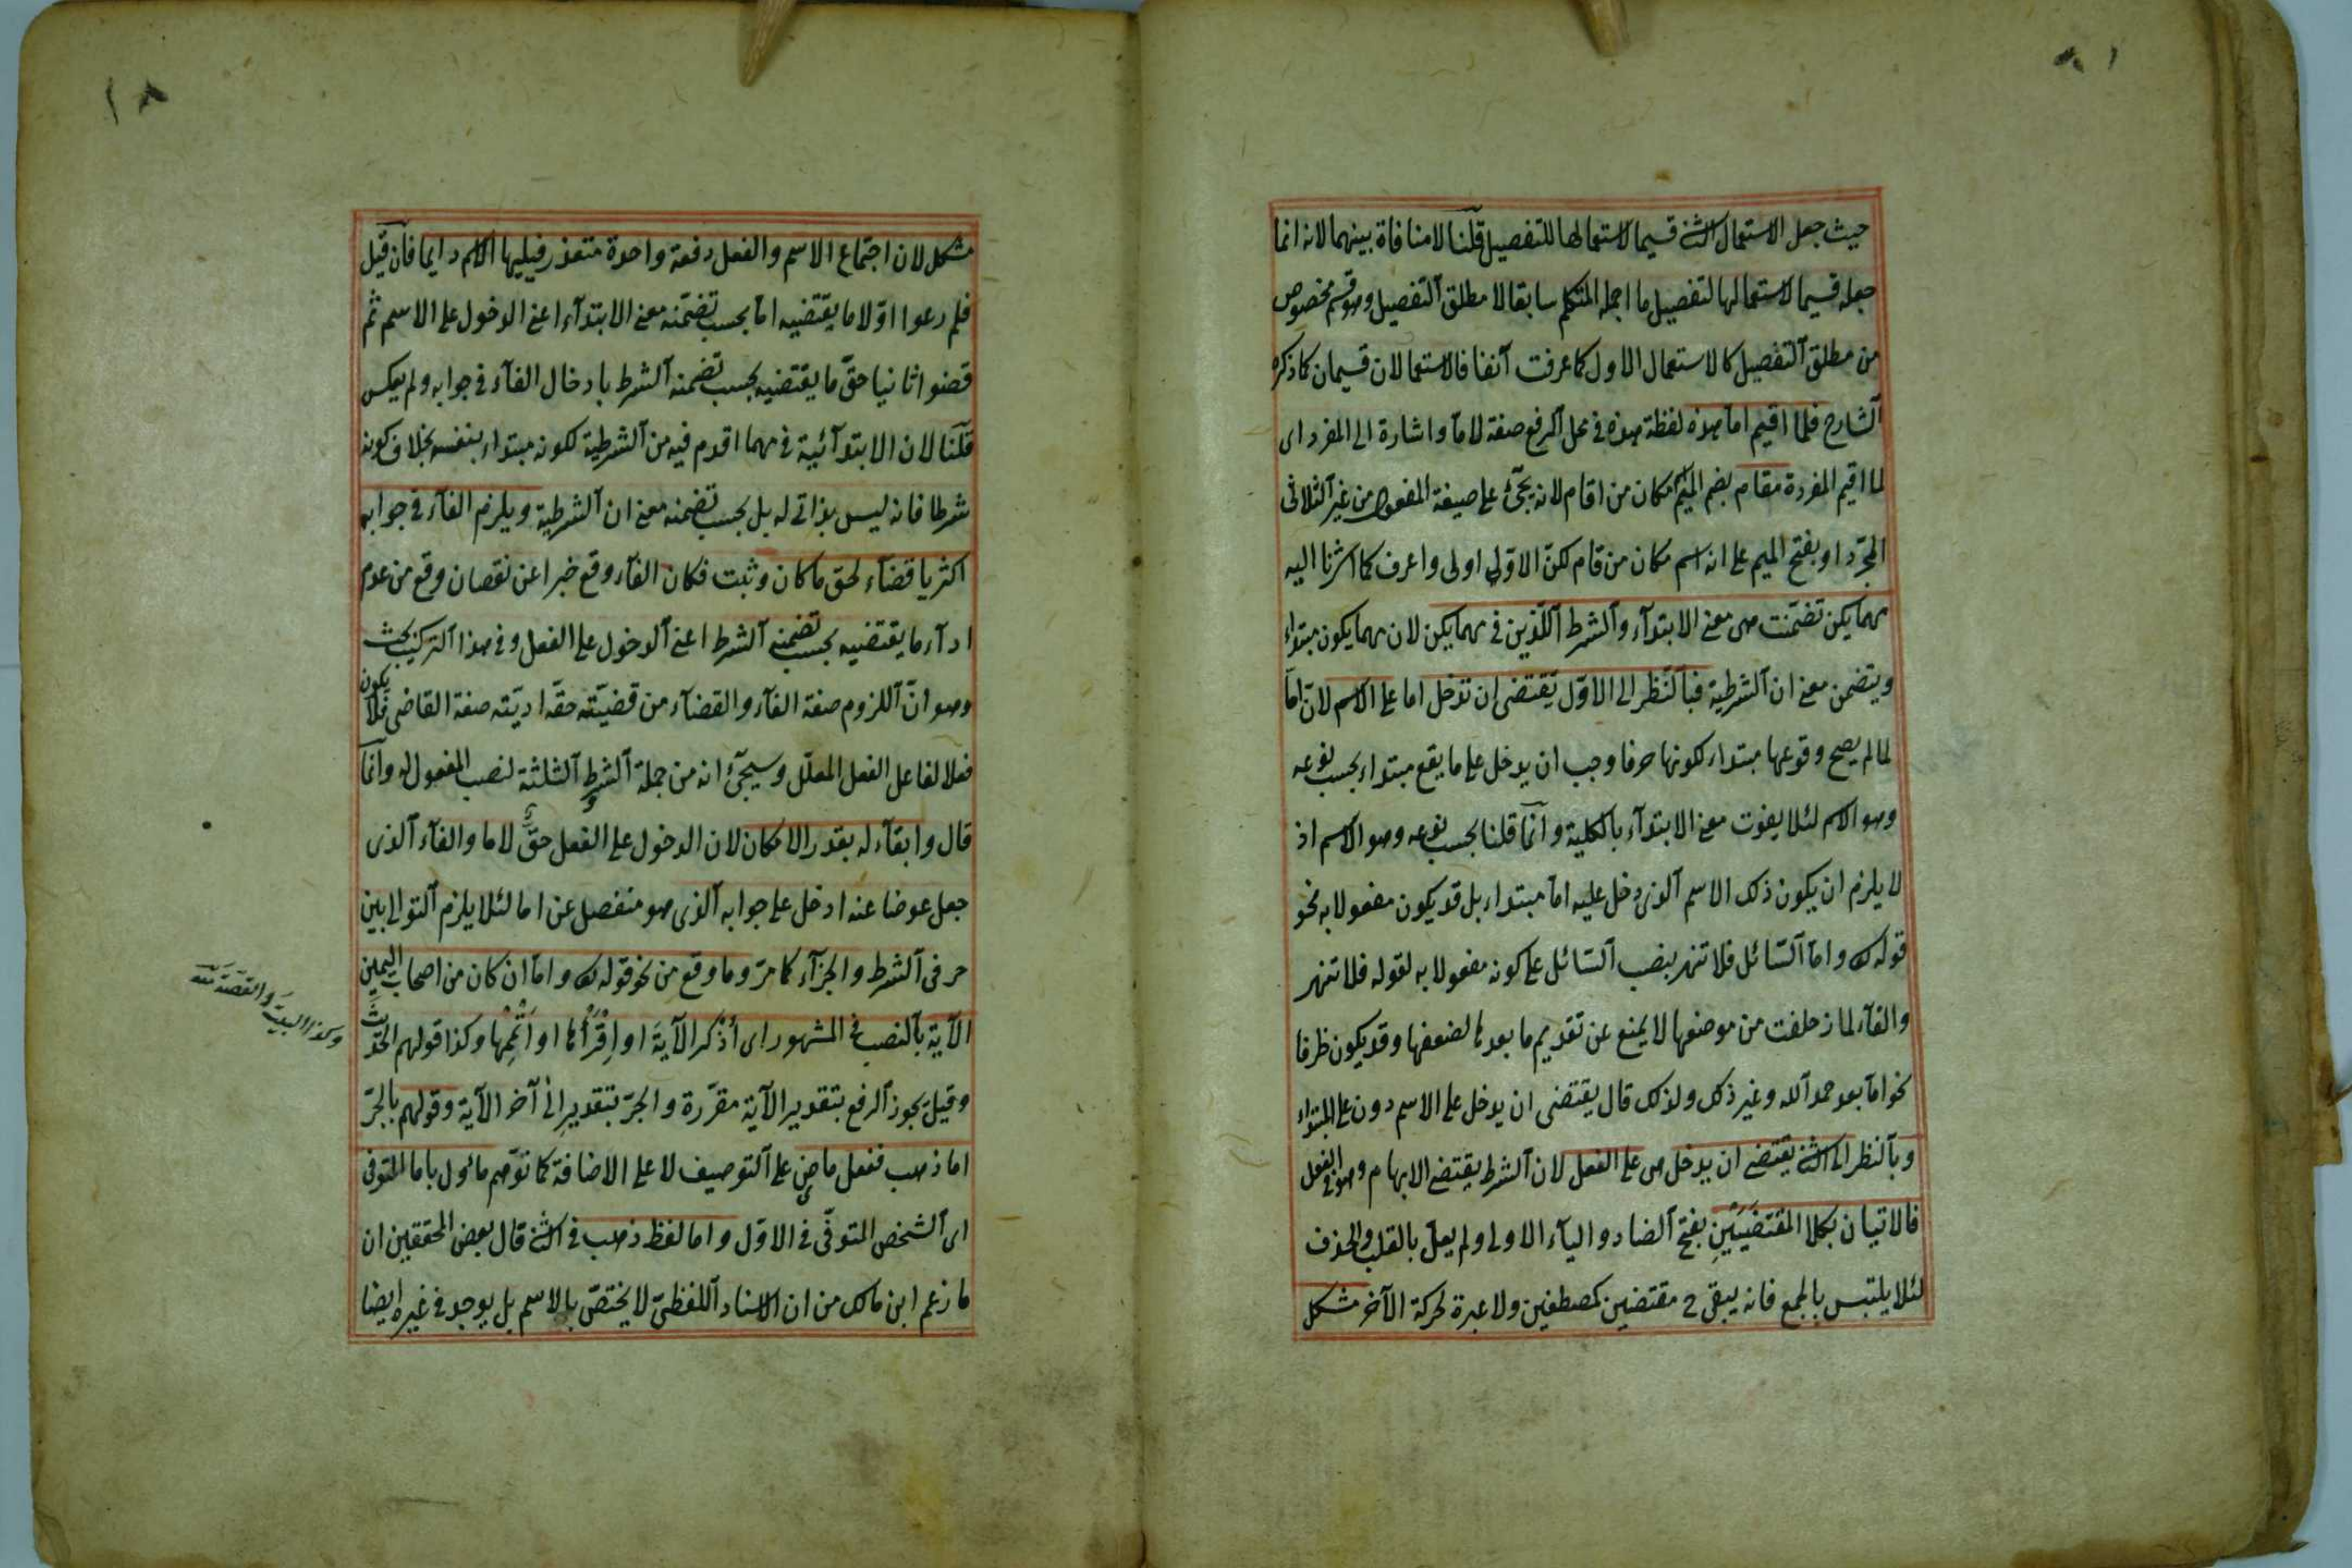 حيث جعل الاستعمال الثنے قسيما لاستعمالها للتفصيل قلنا لا منافاة بينهما لانه انما
جعله قسيما لاستعمالها لتفصيل ما اجمله المتكلم سابقا لا مطلق التفصيل وهو قسم مخصوص
من مطلق التفصيل كالاستعمال الاول كما عرفت آنفا فالاستعمالان قسيمان كما ذكره
الشارح فلما اقيم اما هذه لفظة هذه فى محل الرفع صفة لاما واشارة الى المفرد اى
لما اقيم المفردة مقام بضم الميم مكان من اقام لانه يجئ على صيغة المفعول من غير الثلاثى
المجرّد او بفتح الميم على انه اسم مكان من قام لكنّ الاوّل اولى واعرف كما اشرنا اليه
مهما يكن تضمّنت هى معنے الابتدآء والشرط اللّذين فى مهما يكن لان مهما يكون مبتداء
ويتضمن معنے ان الشرطية فبالنّظر الى الاوّل يقتضى ان تدخل اما على الاسم لانّ اما
لما لم يصح وقوعها مبتداء لكونها حرفا وجب ان يدخل على ما يقع مبتداء بحسب نوعه
وهو الاسم لئلا يفوت معنے الابتدآء بالكلية وانّما قلنا بحسب نوعه وهو الاسم اذ
لا يلزم ان يكون ذلك الاسم الذى دخل عليه اما مبتداء بل قد يكون مفعولا به نحو
قوله تعا واما السّائل فلا تنهر بنصب السّائل على كونه مفعولا به لقوله فلا تنهر
والفآء لما زحلفت من موضعها لا يمنع عن تقديم ما بعدها لضعفها وقد يكون ظرفا
نحو اما بعد حمد الله وغير ذلك ولذلك قال يقتضى ان يدخل على الاسم دون على المبتداء
وبالنظر الى الثنے يقتضے ان يدخل هى على الفعل لان الشرط يقتضے الابهام وهو فى الفعل
فالاتيان بكلا المقتضَيَيْنِ بفتح الضاد والياء الاولى ولم يعلّ بالقلب والحذف
لئلا يلتبس بالجمع فانه يبقى ح مقتضين كمصطفين ولا عبرة لحركة الآخر مشكل
مشكل لان اجتماع الاسم والفعل دفعة واحدة متعذر فيليها الاسم دايما فان قيل
فلم رعوا اوّلا ما يقتضيه اما بحسب تضمّنه معنے الابتدآء اعنے الدخول على الاسم ثمّ
قضوا ثانيا حقّ ما يقتضيه بحسب تضمنه الشرط بادخال الفآء فى جوابه ولم يعكس
قلنا لان الابتدآئية فى مهما اقدم فيه من الشرطية لكونه مبتداء بنفسه بخلاف كونه
شرطا فانه ليس بذاتى له بل بحسب تضمنه معنے ان الشرطية ويلزم الفآء فى جوابه
اكثريا قضآء لحق ما كان وثبت فكان الفآء وقع خبرا عن نقصان وقع من عدم
ادآء ما يقتضيه بحسب تضمنه الشرط اعنے الدخول على الفعل وفى هذا التركيب بحث
وهو انّ اللزوم صفة الفآء والقضآء من قضيّته حقّه ادّيته صفة القاضى فلا يكون
فعلا لفاعل الفعل المعلّل وسيجئ انه من جملة الشرط الثلثة لنصب المفعول له وانّما
قال وابقآء له بقدر الامكان لان الدخول على الفعل حقّ لاما والفآء الذى
جعل عوضا عنه ادخل على جوابه الذى هو منفصل عن اما لئلا يلزم التوالى بين
حرفى الشرط والجزآء كما مرّ وما وقع من نحو قوله تعا واما ان كان من اصحاب اليمين
الآية بالنصب فى المشهور اى أذكر الآيةَ او اِقْرَأْها او اَتْمِمْها وكذا قولهم الحديث
وقيل يجوز الرفع بتقدير الآية مقرّرة والجرّ بتقدير اِلىٰ آخر الآية وقولهم بالجرّ
اما ذهب ففعل ماضٍ على التوصيف لا على الاضافة كما توّهم مائول باما المتوفى
اى الشخص المتوفّى فى الاوّل واما لفظ ذهب فى الثنے قال بعض المحققين ان
ما زعم ابن مالك من ان الاسناد اللفظىّ لا يختصّ بالاسم بل يوجد فى غيره ايضا
وكذا البيتَ والقصّةَ